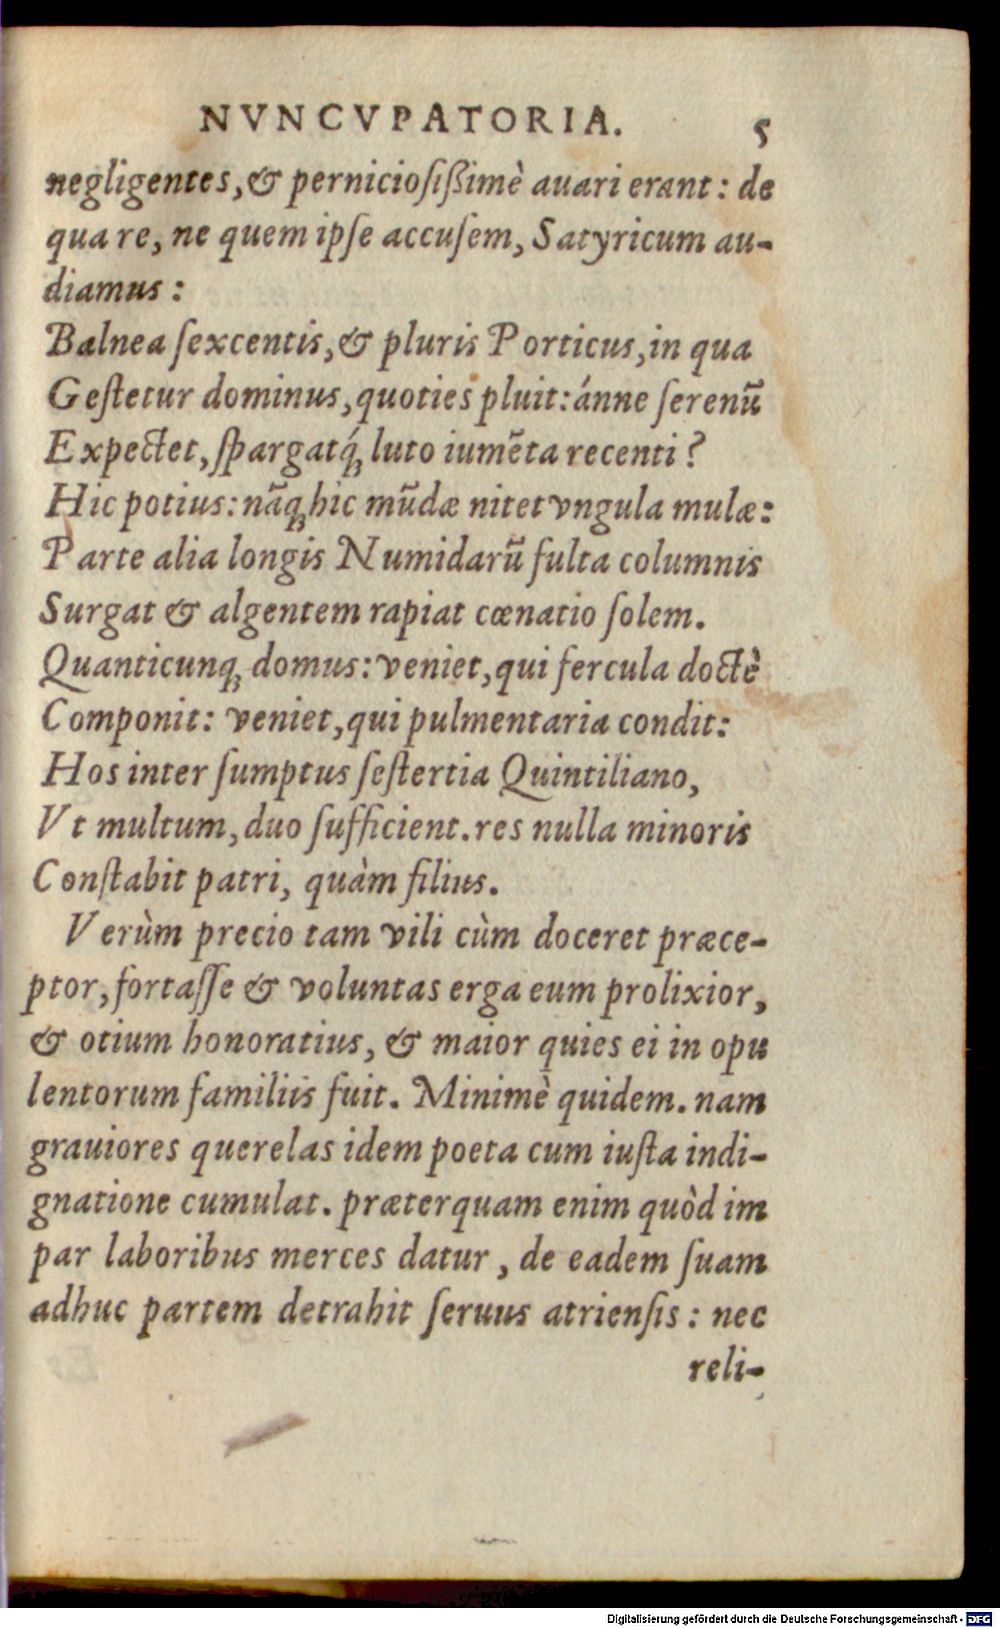 NVNCVPATORIA. 5
negligentes, & pernicioſiſsimè auari erant: de
qua re, ne quem ipſe accuſem, Satyricum au-
diamus:
Balnea ſexcentis, & pluris Porticus, in qua
Geſtetur dominus, quoties pluit: ánne ſerenū
Expectet, ſpargatq́; luto iumēta recenti?
Hic potius: nāq; hic mūdæ nitet vngula mulæ:
Parte alia longis Numidarū fulta columnis
Surgat & algentem rapiat cœnatio ſolem.
Quanticunq; domus: veniet, qui fercula doctè
Componit: veniet, qui pulmentaria condit:
Hos inter ſumptus ſeſtertia Quintiliano,
Vt multum, duo ſufficient. res nulla minoris
Conſtabit patri, quàm filius.
Verùm precio tam vili cùm doceret præce-
ptor, fortaſſe & voluntas erga eum prolixior,
& otium honoratius, & maior quies ei in opu
lentorum familiis fuit. Minimè quidem. nam
grauiores querelas idem poeta cum iuſta indi-
gnatione cumulat. præterquam enim quòd im
par laboribus merces datur, de eadem ſuam
adhuc partem detrahit ſeruus atrienſis: nec
reli-
Digitalisierung gefördert durch die Deutsche Forschungsgemeinschaft - DFG